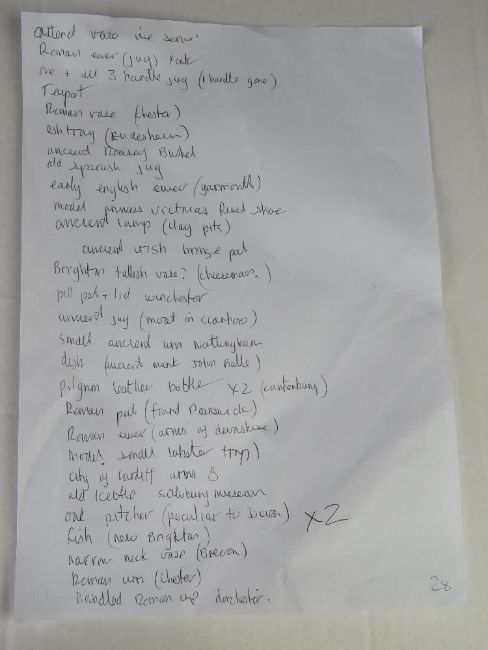 vase
Roman ewer (jug) York
one + all 3 handle jug (1 handle gone)
Teapot
Roman vase (Chester)
ashtray
ancient Romsey Bushel
old Spanish jug
early english ewer (yarmouth)
model princess victorias first shoe
ancient lamp (clay pits)
ancient irish bronze pot
Brighton vase? (cheeseman.)
pill pot + lid winchester
ancient jug (moat in scarboro)
small ancient urn Nottingham
dish (ancient mark John)
pilgrim leather bottle x2 (canterbury)
Roman pot (found)
Roman ewer (arms of devonshire)
Model small lobster trap)
city of cardiff arms
old kettle salisbury museum
oak pitcher (peculiar to Devon) x2
fish (new Brighton)
narrow neck vase (Brecon)
Roman urn (Chester)
handled Roman cup dorchester.
28